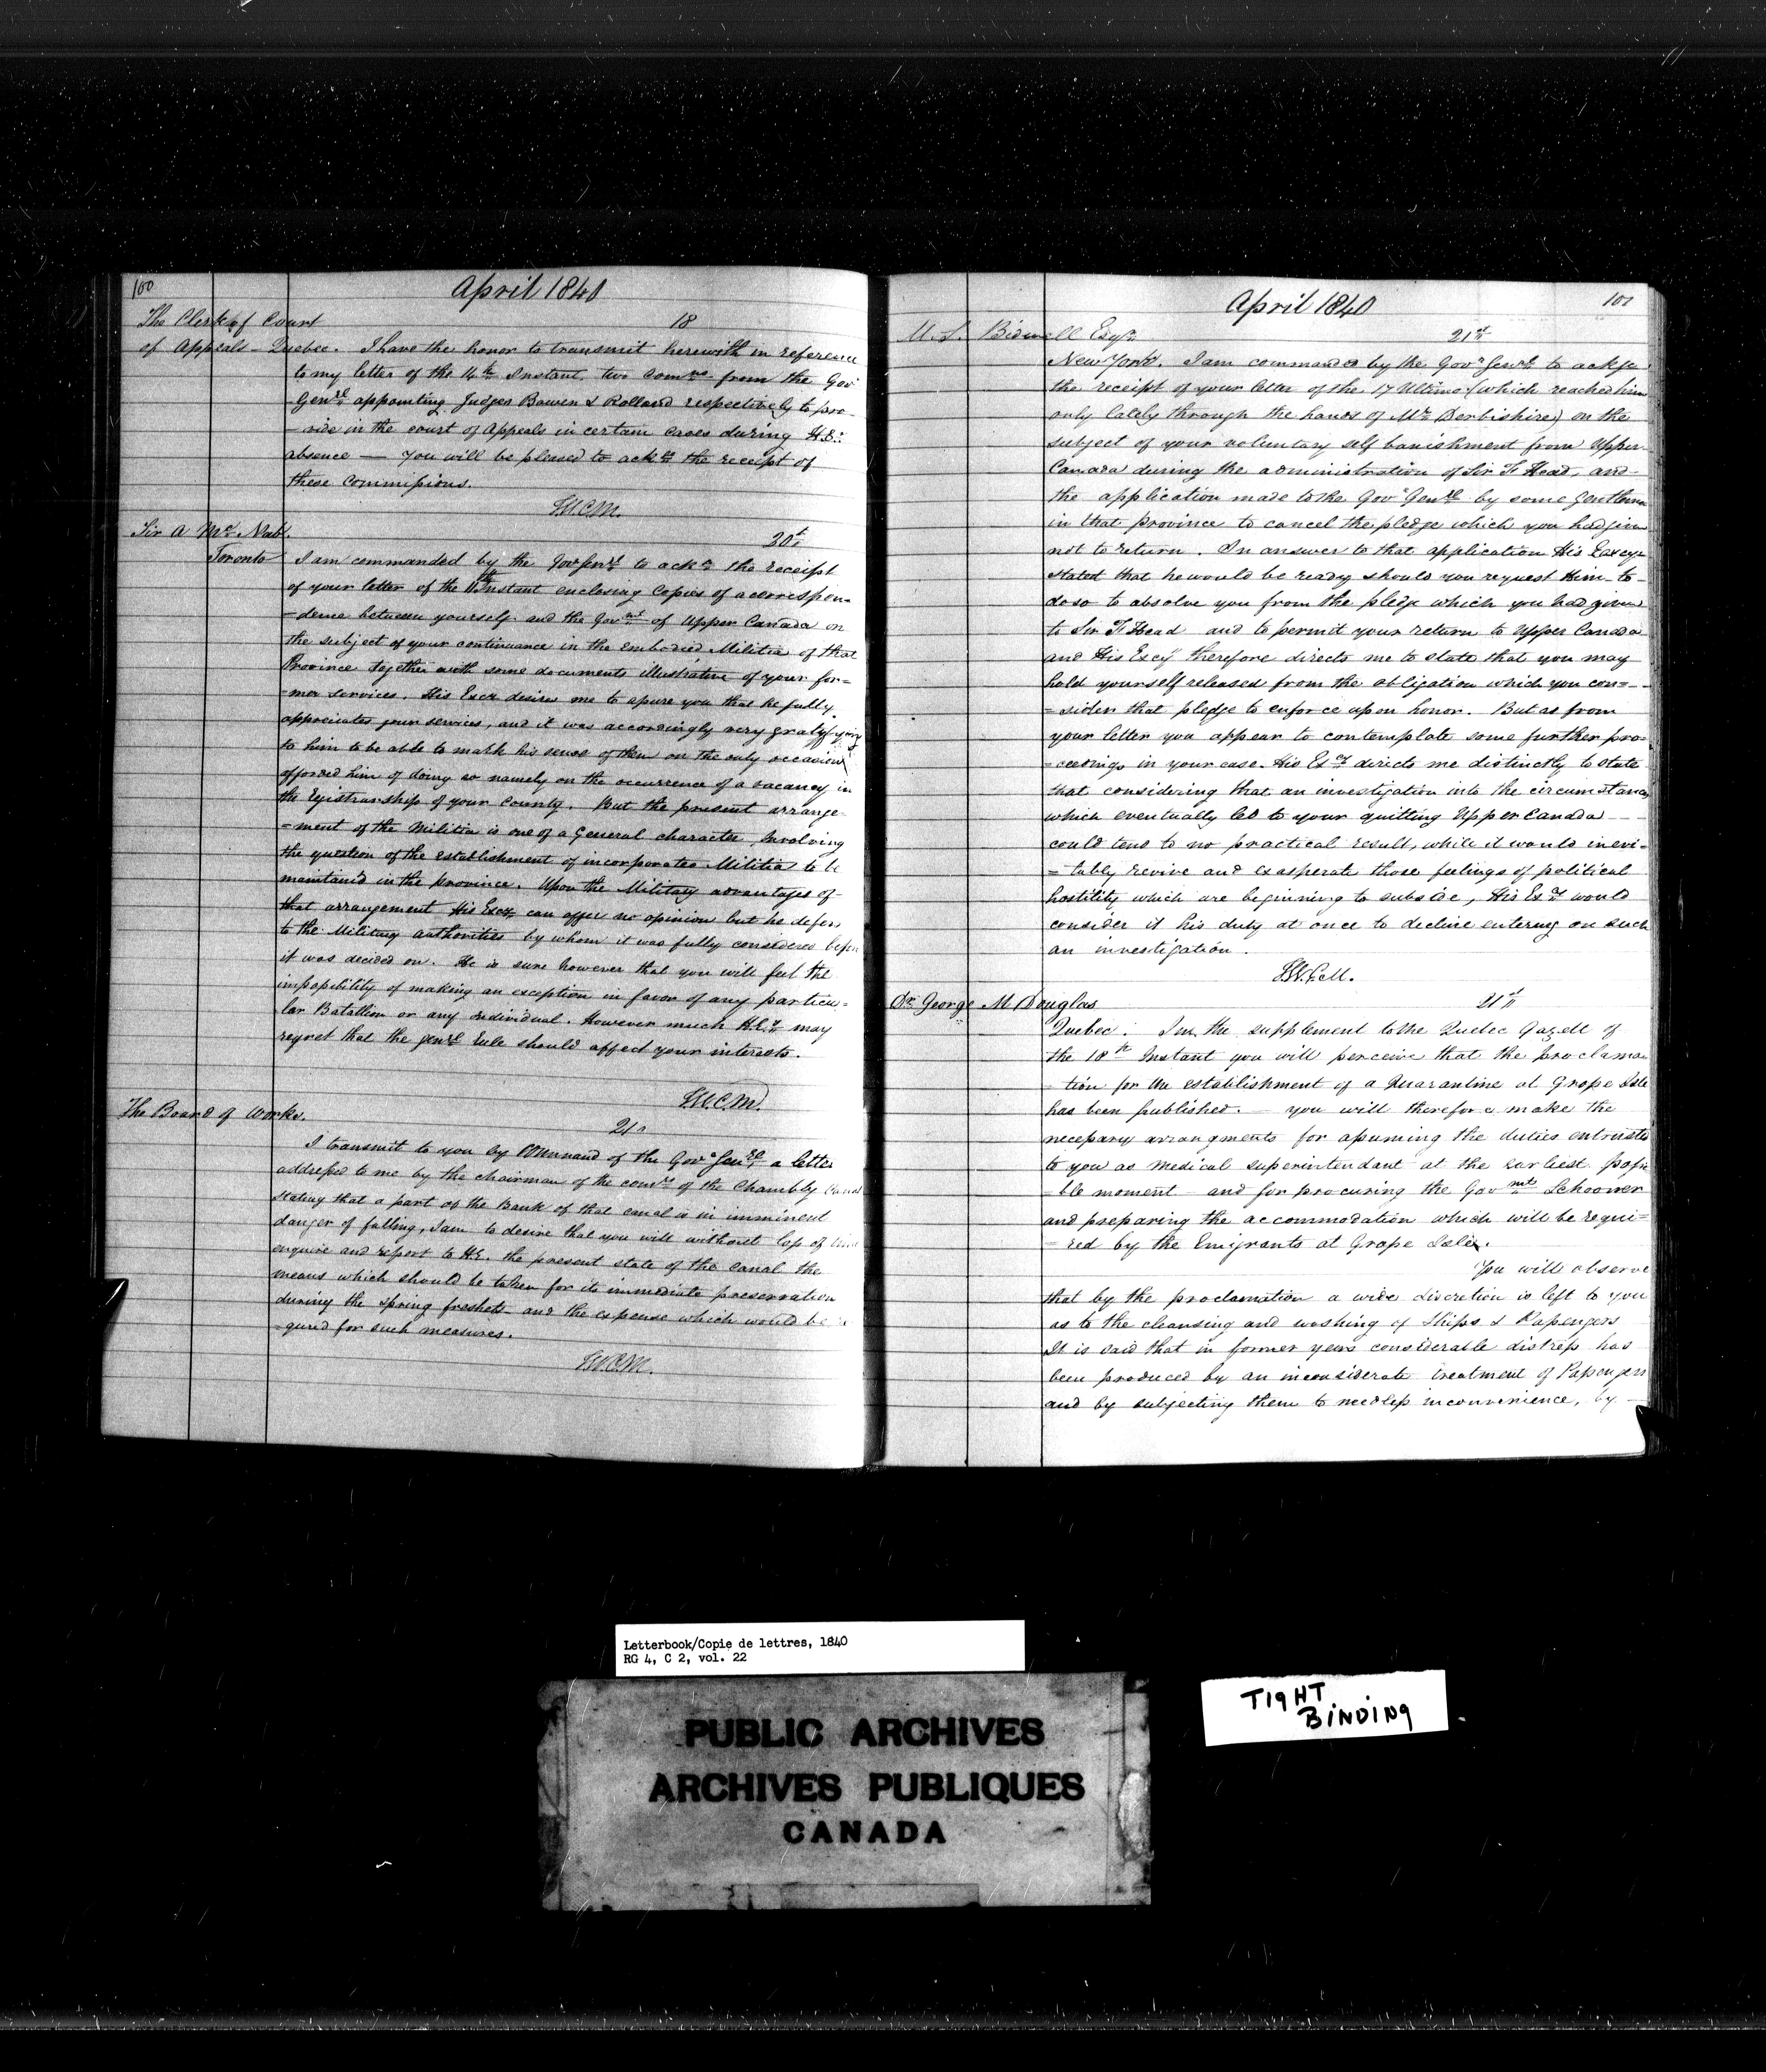 100
April 1840
The Clerk of Court 18
of Appeals - Quebec. I have the honor to transmit herewith in reference
to my letter of the 14th Instant, two Comns from the Govr
Genrl appointing Judges Bowen & Rolland respectively to pre-
-side in the court of Appeals in certain Cases during H.E.
absence — You will be pleased to ackn the receipt of
these Commissions.
T.W.C.M.
Sir A McNab. 20t
Toronto I am commanded by the Gov Genrl to ackn the receipt
of your letter of the Instant enclosing Copies of a correspon=
=dence between yourself and the Govnt of Upper Canada on
the subject of your continuance in the embodied Militia of that
Province together with some documents illustrative of your for=
=mer services. His Excy desires me to assure you that he fully
appreciates your services, and it was accordingly very gratifying
to him to be able to mark his sense of them on the only occasion
afforded him of doing so namely on the occurrence of a vacancy in
the Registrarship of your County. But the present arrange-
=ment of the Militia is one of a General character, Involving
the question of the establishment of incorporated Militia to be
maintain'd in the province. Upon the Military advantages of
that arrangement His Excy can offer no opinion but he defers
to the Military authorities by whom it was fully considered before
it was decided on. He is sure however that you will feel the
impossibility of making an exception in favor of any particu=
lar Batallion or any individual. However much H.Ey may
regret that the genrl Rule should affect your interests.
T.W.C.M.
The Board of Works.
21
I transmit to you by Command of the Govr Genrl, a letter
addressed to me by the chairman of the comrs of the Chambly Canal
stating that a part of the Bank of that canal is in imminent
danger of falling, I am to desire that you will without loss of time
enquire and report to H.E. the present state of the canal the
means which should be taken for its immediate preservation
during the spring freshets and the expense which would be re
=quired for such measures.
T.W.C.M.
101
April 1840
M. S. Bidwell Esqr 21st
New York. I am commanded by the Govr Genrl to ackge
the receipt of your letter of the 17 Ultimo (which reached him
only lately through the hands of Mr Derbishire) on the
subject of your voluntary self banishment from Upper
Canada during the administration of Sir F Head, and
the application made to the Govr Genrl by some gentlemen
in that province to cancel the pledge which you had given
not to return. In answer to that application His Excey
stated that he would be ready should you request Him to
do so to absolve you from the pledge which you had given
to Sir F Head and to permit your return to Upper Canada
and His Excy therefore directs me to state that you may
hold yourself released from the obligation which you con=
=sider that pledge to enforce upon honor. But as from
your letter you appear to contemplate some further pro=
=ceedings in your case. His Exy directs me distinctly to state
that considering that an investigation into the circumstances
which eventually led to your quitting Upper Canada
could tend to no practical result, while it would inevi=
=tably revive and exasperate those feelings of political
hostility which are beginning to subside, His Exy would
consider it his duty at once to decline entering on such
an investigation.
T.W.C.M.
Dr George M Douglas 21st
Quebec. In the supplement to the Quebec Gazett of
the 18th Instant you will perceive that the proclama
=tion for the establishment of a Quarantine at Grose Isle
has been published. — you will therefore make the
necessary arrangments for assuming the duties entrusted
to you as Medical superintendant at the earliest possi
=ble moment and for procuring the Govmt Schooner
and preparing the accommodation which will be requi=
=red by the Emigrants at Grose Isle.
You will observe
that by the proclamation a wide discretion is left to you
as to the cleansing and washing of Ships & Passengers
It is said that in former years considerable distress has
been produced by an inconsiderate treatment of Passengers
and by subjecting them to needless inconvenience, by
Letterbook/Copie de lettres, 1840
RG 4, C 2, vol. 22
PUBLIC ARCHIVES
ARCHIVES PUBLIQUES
CANADA
TIGHT
BINDING